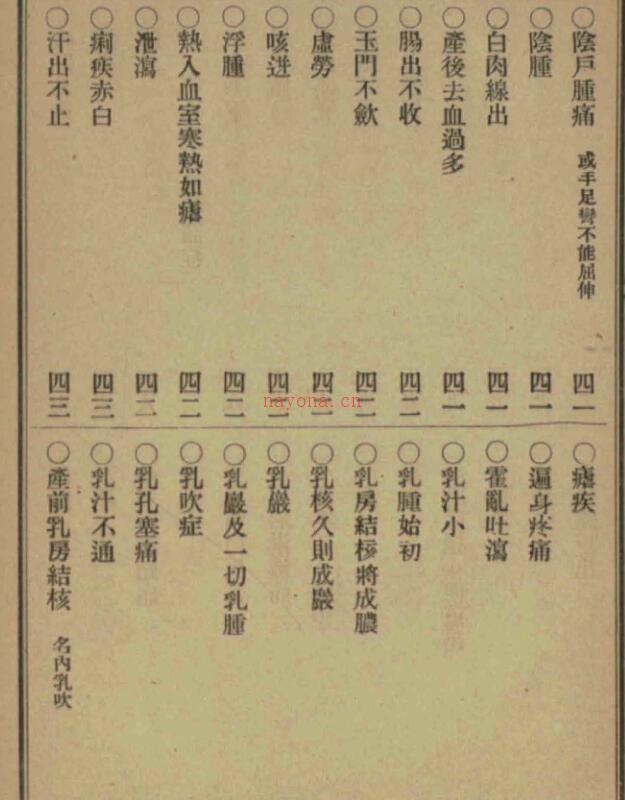 ○陰戶腫痛 或手足彎不能屈伸 四一
○陰腫 四一
○白肉線出 四一
○產後去血過多 四一
○腸出不收 四二
○玉門不歛 四二
○虛勞 四二
○咳逆 四二
○浮腫 四二
○熱入血室寒熱如瘧 四二
○泄瀉 四二
○痢疾赤白 四三
○汗出不止 四三
○瘧疾
○遍身疼痛
○霍亂吐瀉
○乳汁小
○乳腫始初
○乳房結核將成膿
○乳核久則成巖
○乳巖
○乳巖及一切乳腫
○乳吹症
○乳孔塞痛
○乳汁不通
○產前乳房結核 名內乳吹
nayona.cn